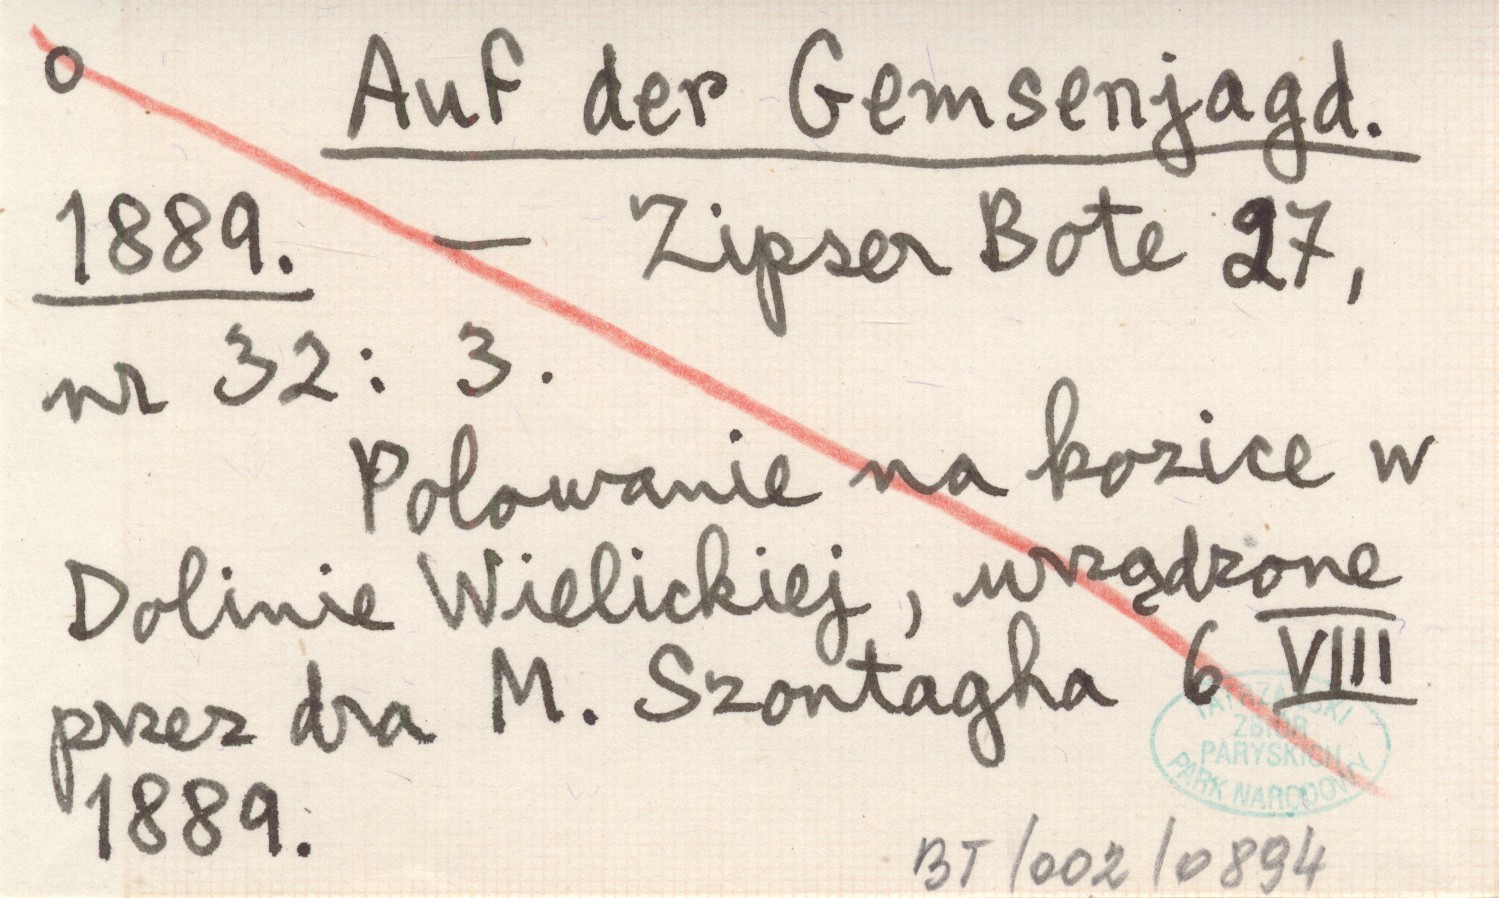 o Auf der Gemsenjagd.
1889. — Zipser Bote 27,
nr 32: 3.
Polowanie na kozice w
Dolinie Wielickiej, urządzone
przez dra M. Szontagha 6 VIII
1889.
TATRZAŃSKI
ZBIÓR
PARYSKICH
PARK NARODOWY
BT/002/0894